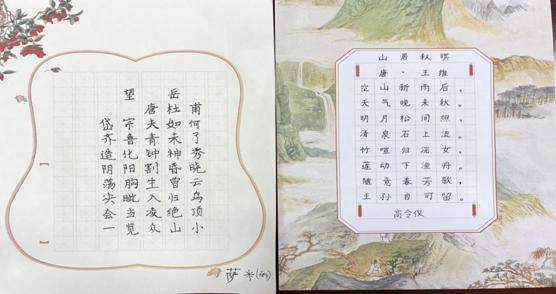 望岳
唐杜甫
岱宗夫如何
齐鲁青未了
造化钟神秀
阴阳割昏晓
荡胸生曾云
决眦入归鸟
会当凌绝顶
一览众山小
山居秋暝
唐·王维
空山新雨后，
天气晚来秋。
明月松间照，
清泉石上流。
竹喧归浣女，
莲动下渔舟。
随意春芳歇，
王孙自可留。
高令仪